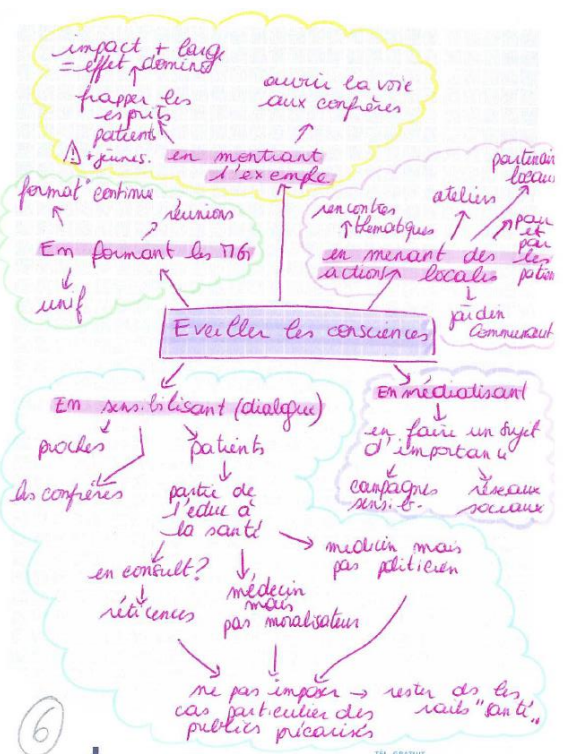 impact + large
= effet domino
frapper les
esprits
patients
⚠ + jeunes.
ouvrir la voie
aux confrères
en montrant
l'exemple
format° continue
réunions
En formant les MG
unif
rencontres
thématiques
ateliers
partenair
locaux
par
et
par
les
patien
en menant des
actions locales
jardin
Communaut
Eveiller les consciences
En sensibilisant (dialogue)
proches
les confrères
patients
partie de
l'éduc à
la santé
en consult?
réticences
médecin
mais
pas moralisateur
médecin mais
pas politicien
ne pas imposer → rester ds les
rails "santé"
cas particulier des
publics précarisés
En médiatisant
en faire un sujet
d'importance
campagnes
sensib.
réseaux
sociaux
6